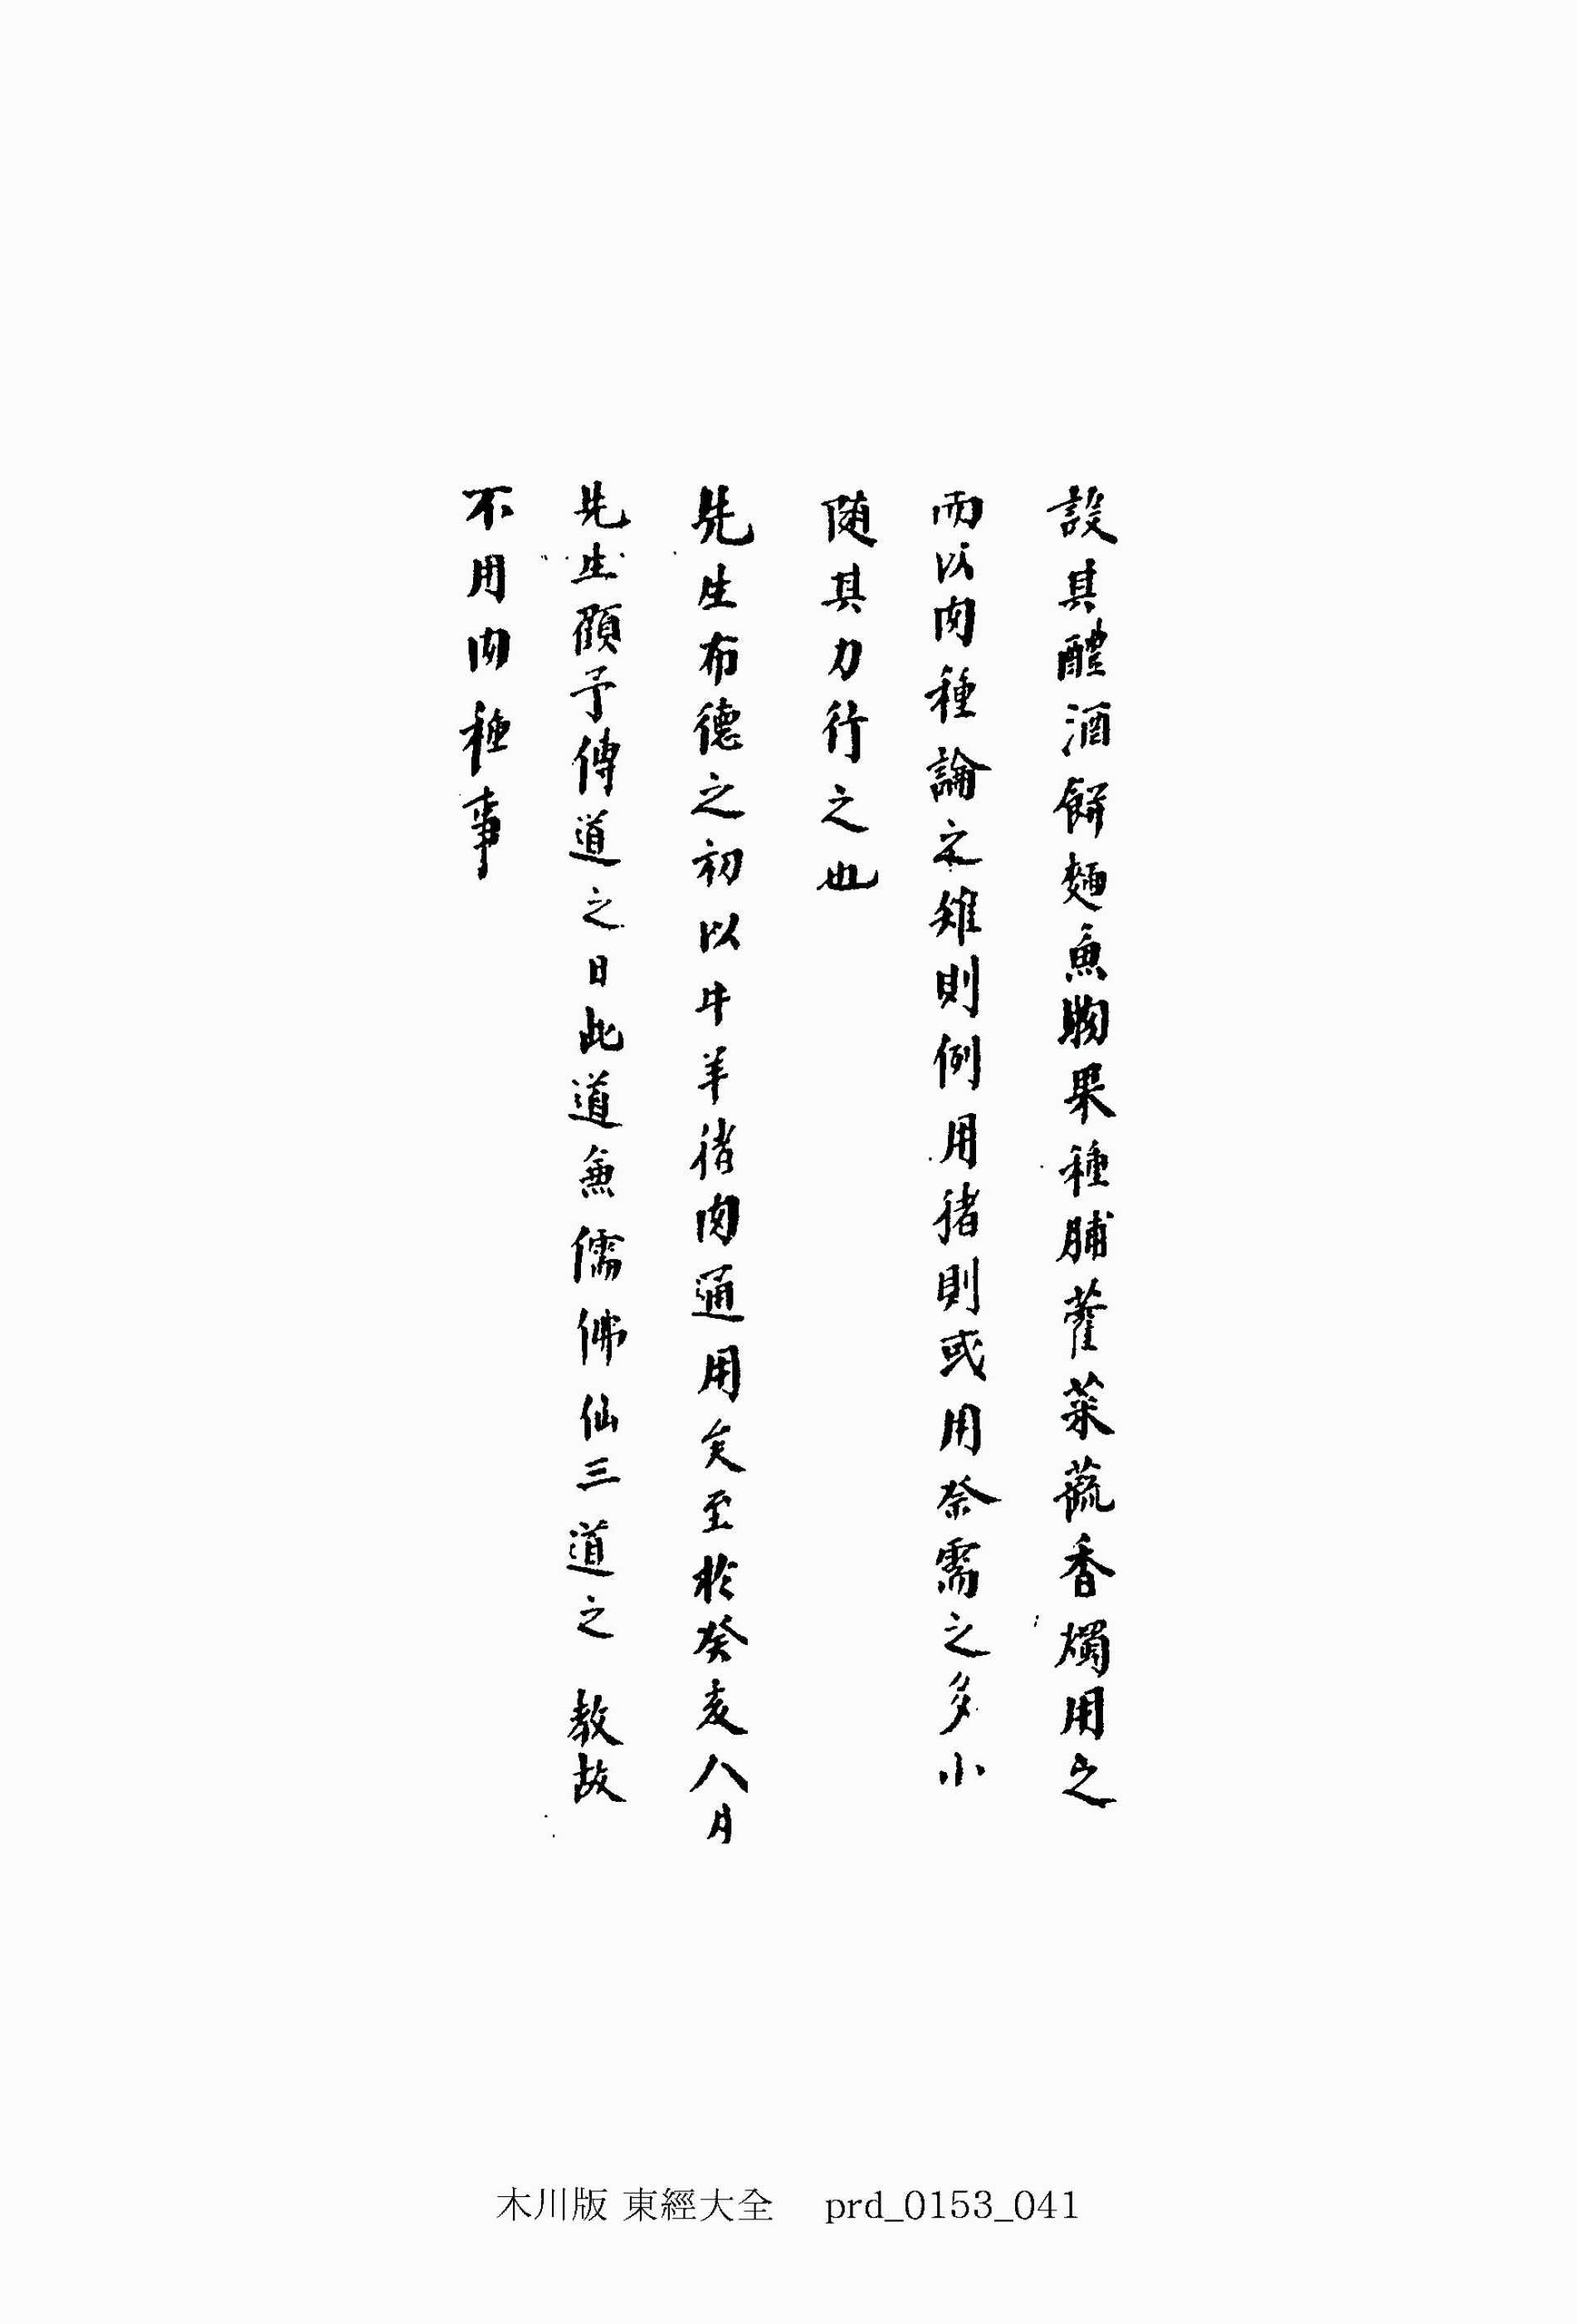 設其醴酒餠麵魚物果種脯藿菜蔬香燭用之
而以肉種論之雉則例用猪則或用祭需之多小
随其力行之也
先生布德之初以牛羊猪肉通用矣至於癸亥八月
先生顧予傳道之日此道兼儒佛仙三道之 敎故
不用肉種事
木川版 東經大全 prd_0153_041